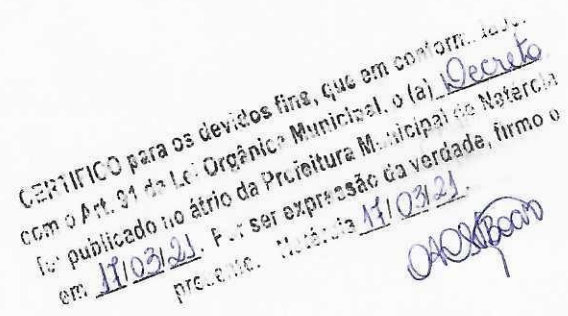 CERTIFICO para os devidos fins, que em conformidade
com o Art. 91 da Lei Orgânica Municipal, o (a) Decreto
foi publicado no átrio da Prefeitura Municipal de Natércia
em 17/03/21. Por ser expressão da verdade, firmo o
presente. Natércia 17/03/21.